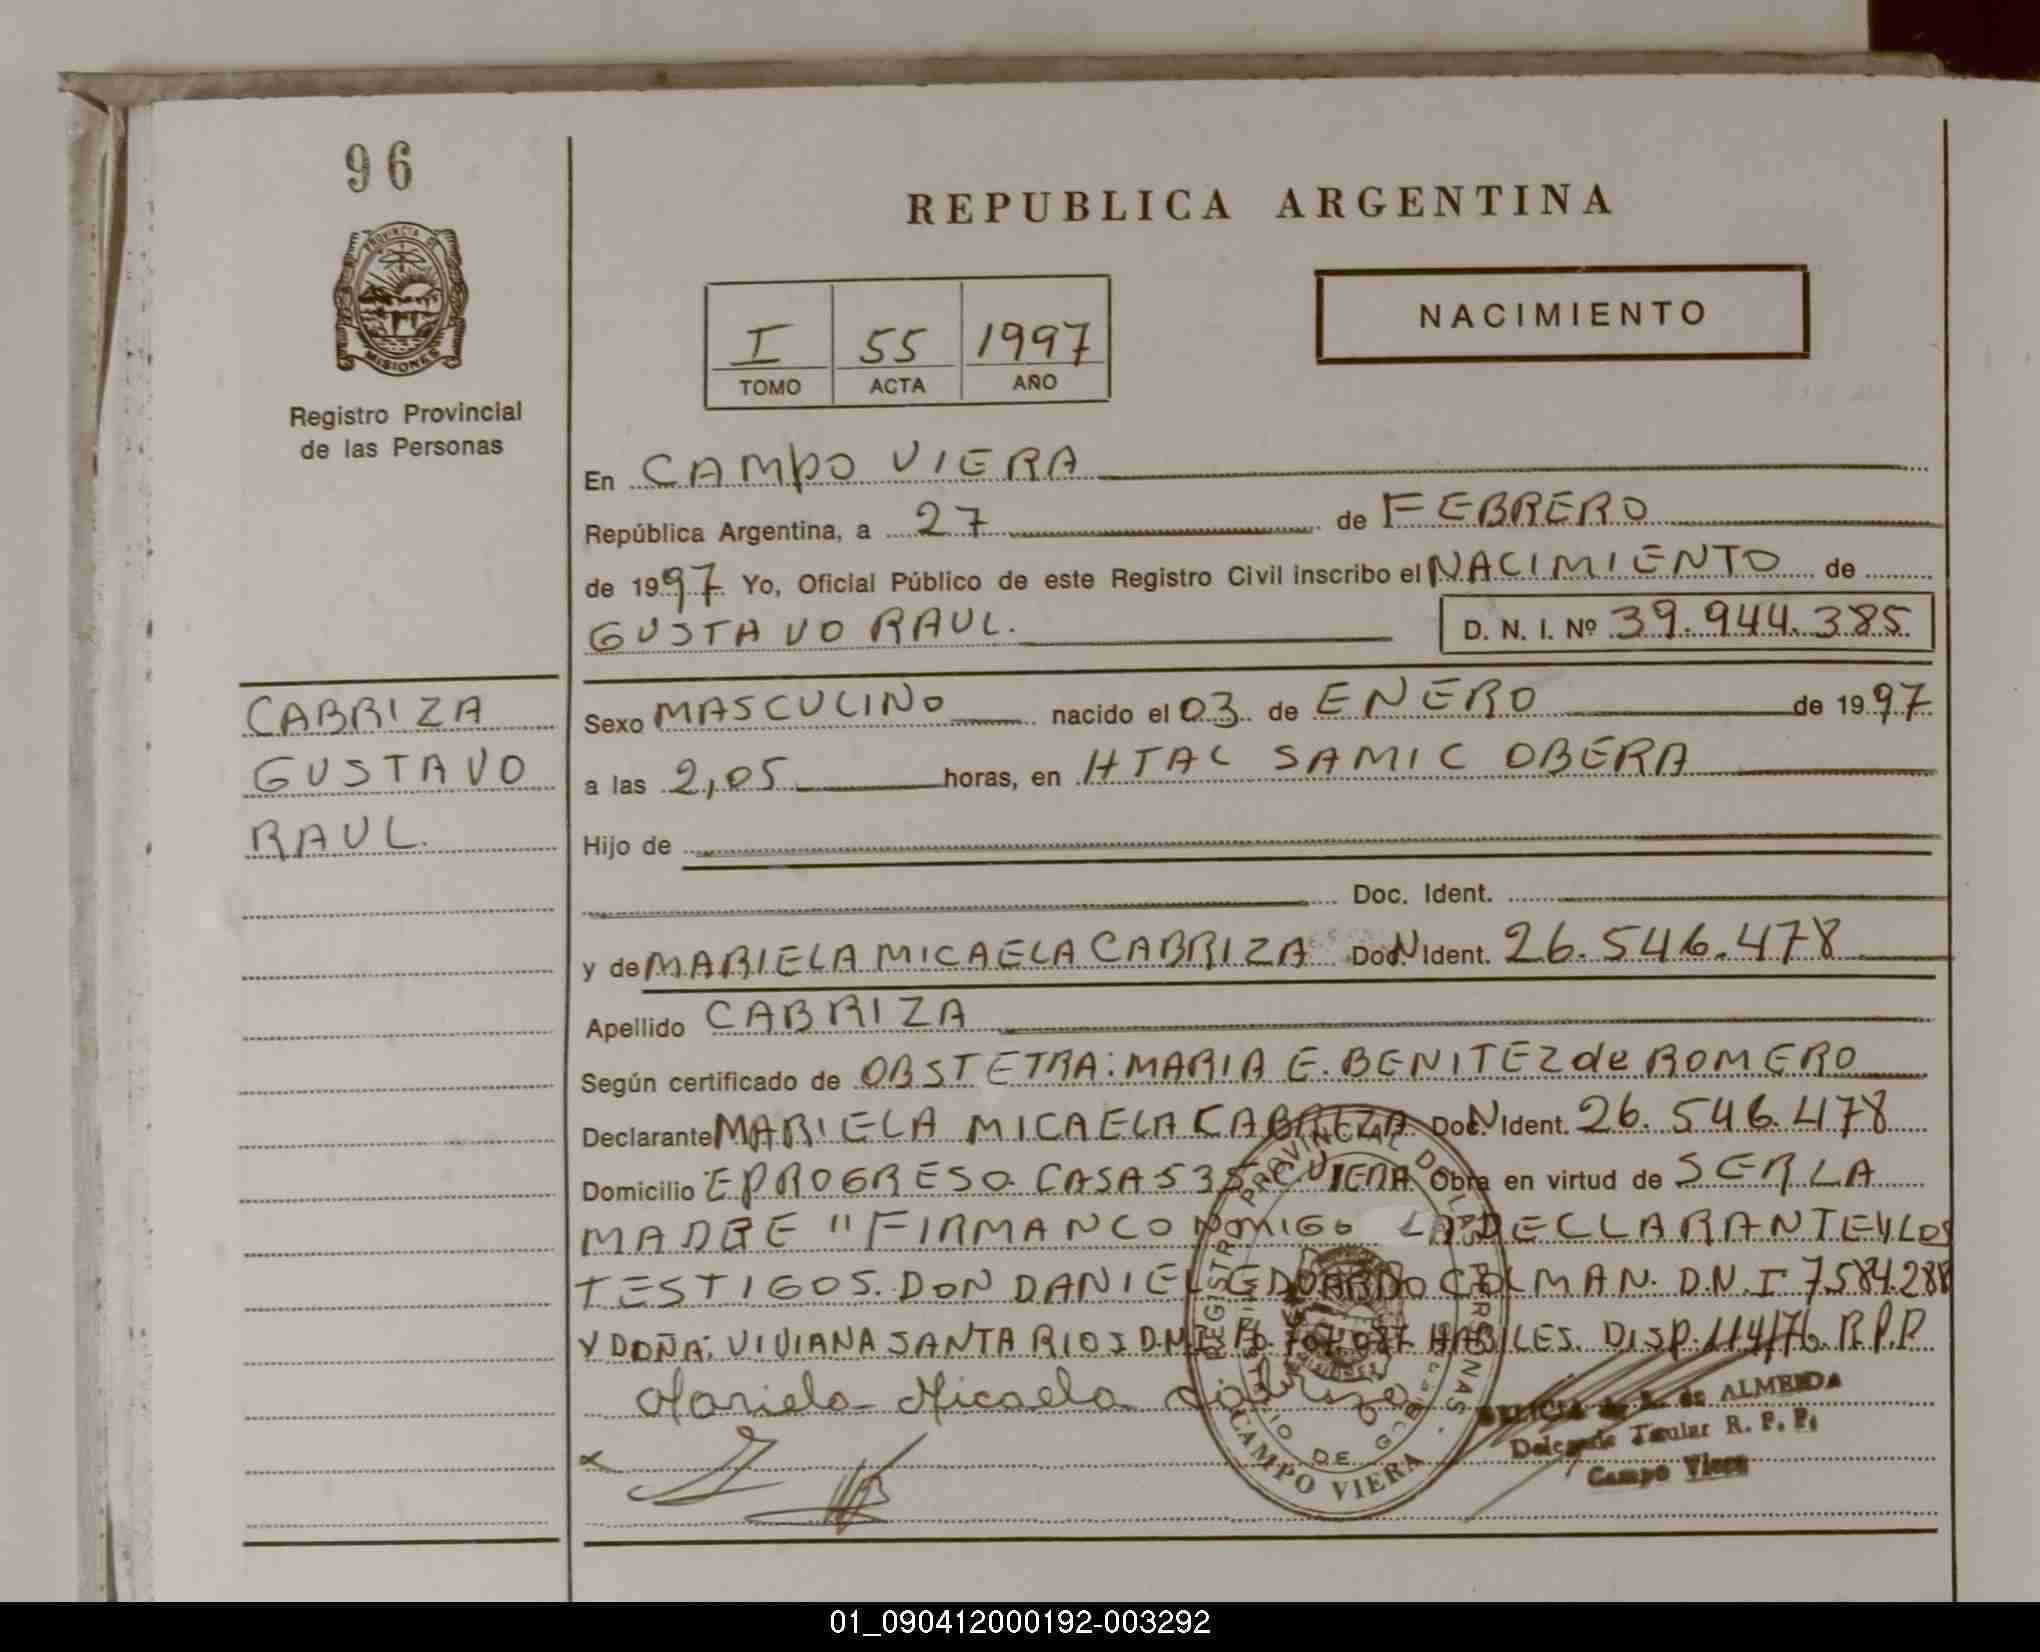 96
REPUBLICA ARGENTINA
PROVINCIA DE
MISIONES
Registro Provincial
de las Personas
NACIMIENTO
I 55 1997
TOMO ACTA AÑO
En CAMPO VIERA
República Argentina, a 27 de FEBRERO
de 1997 Yo, Oficial Público de este Registro Civil inscribo el NACIMIENTO de
GUSTAVO RAUL. D. N. I. Nº 39.944.385
CABRIZA
GUSTAVO
RAUL.
Sexo MASCULINO nacido el 03 de ENERO de 1997
a las 2,05 horas, en HTAL SAMIC OBERA
Hijo de
Doc. Ident.
y de MARIELA MICAELA CABRIZA Doc. Ident. 26.546.478
Apellido CABRIZA
Según certificado de OBSTETRA: MARIA E. BENITEZ de ROMERO
Declarante MARIELA MICAELA CABRIZA Doc. Ident. 26.546.478
Domicilio E PROGRESO CASA 535 C. VIERA Obra en virtud de SER LA
MADRE "FIRMAN CONMIGO LA DECLARANTE Y LOS
TESTIGOS. DON DANIEL EDUARDO COLMAN. D.N.I 7584.288
Y DOÑA: VIVIANA SANTA RIOS D.N.I HABILES. DISP. 114/76. R.P.P.
Mariela Micaela Cabriza
REGISTRO PROVINCIAL DE LAS PERSONAS
CAMPO VIERA
de ALMEIDA
Titular R. P. P.
Campo Viera
01_090412000192-003292